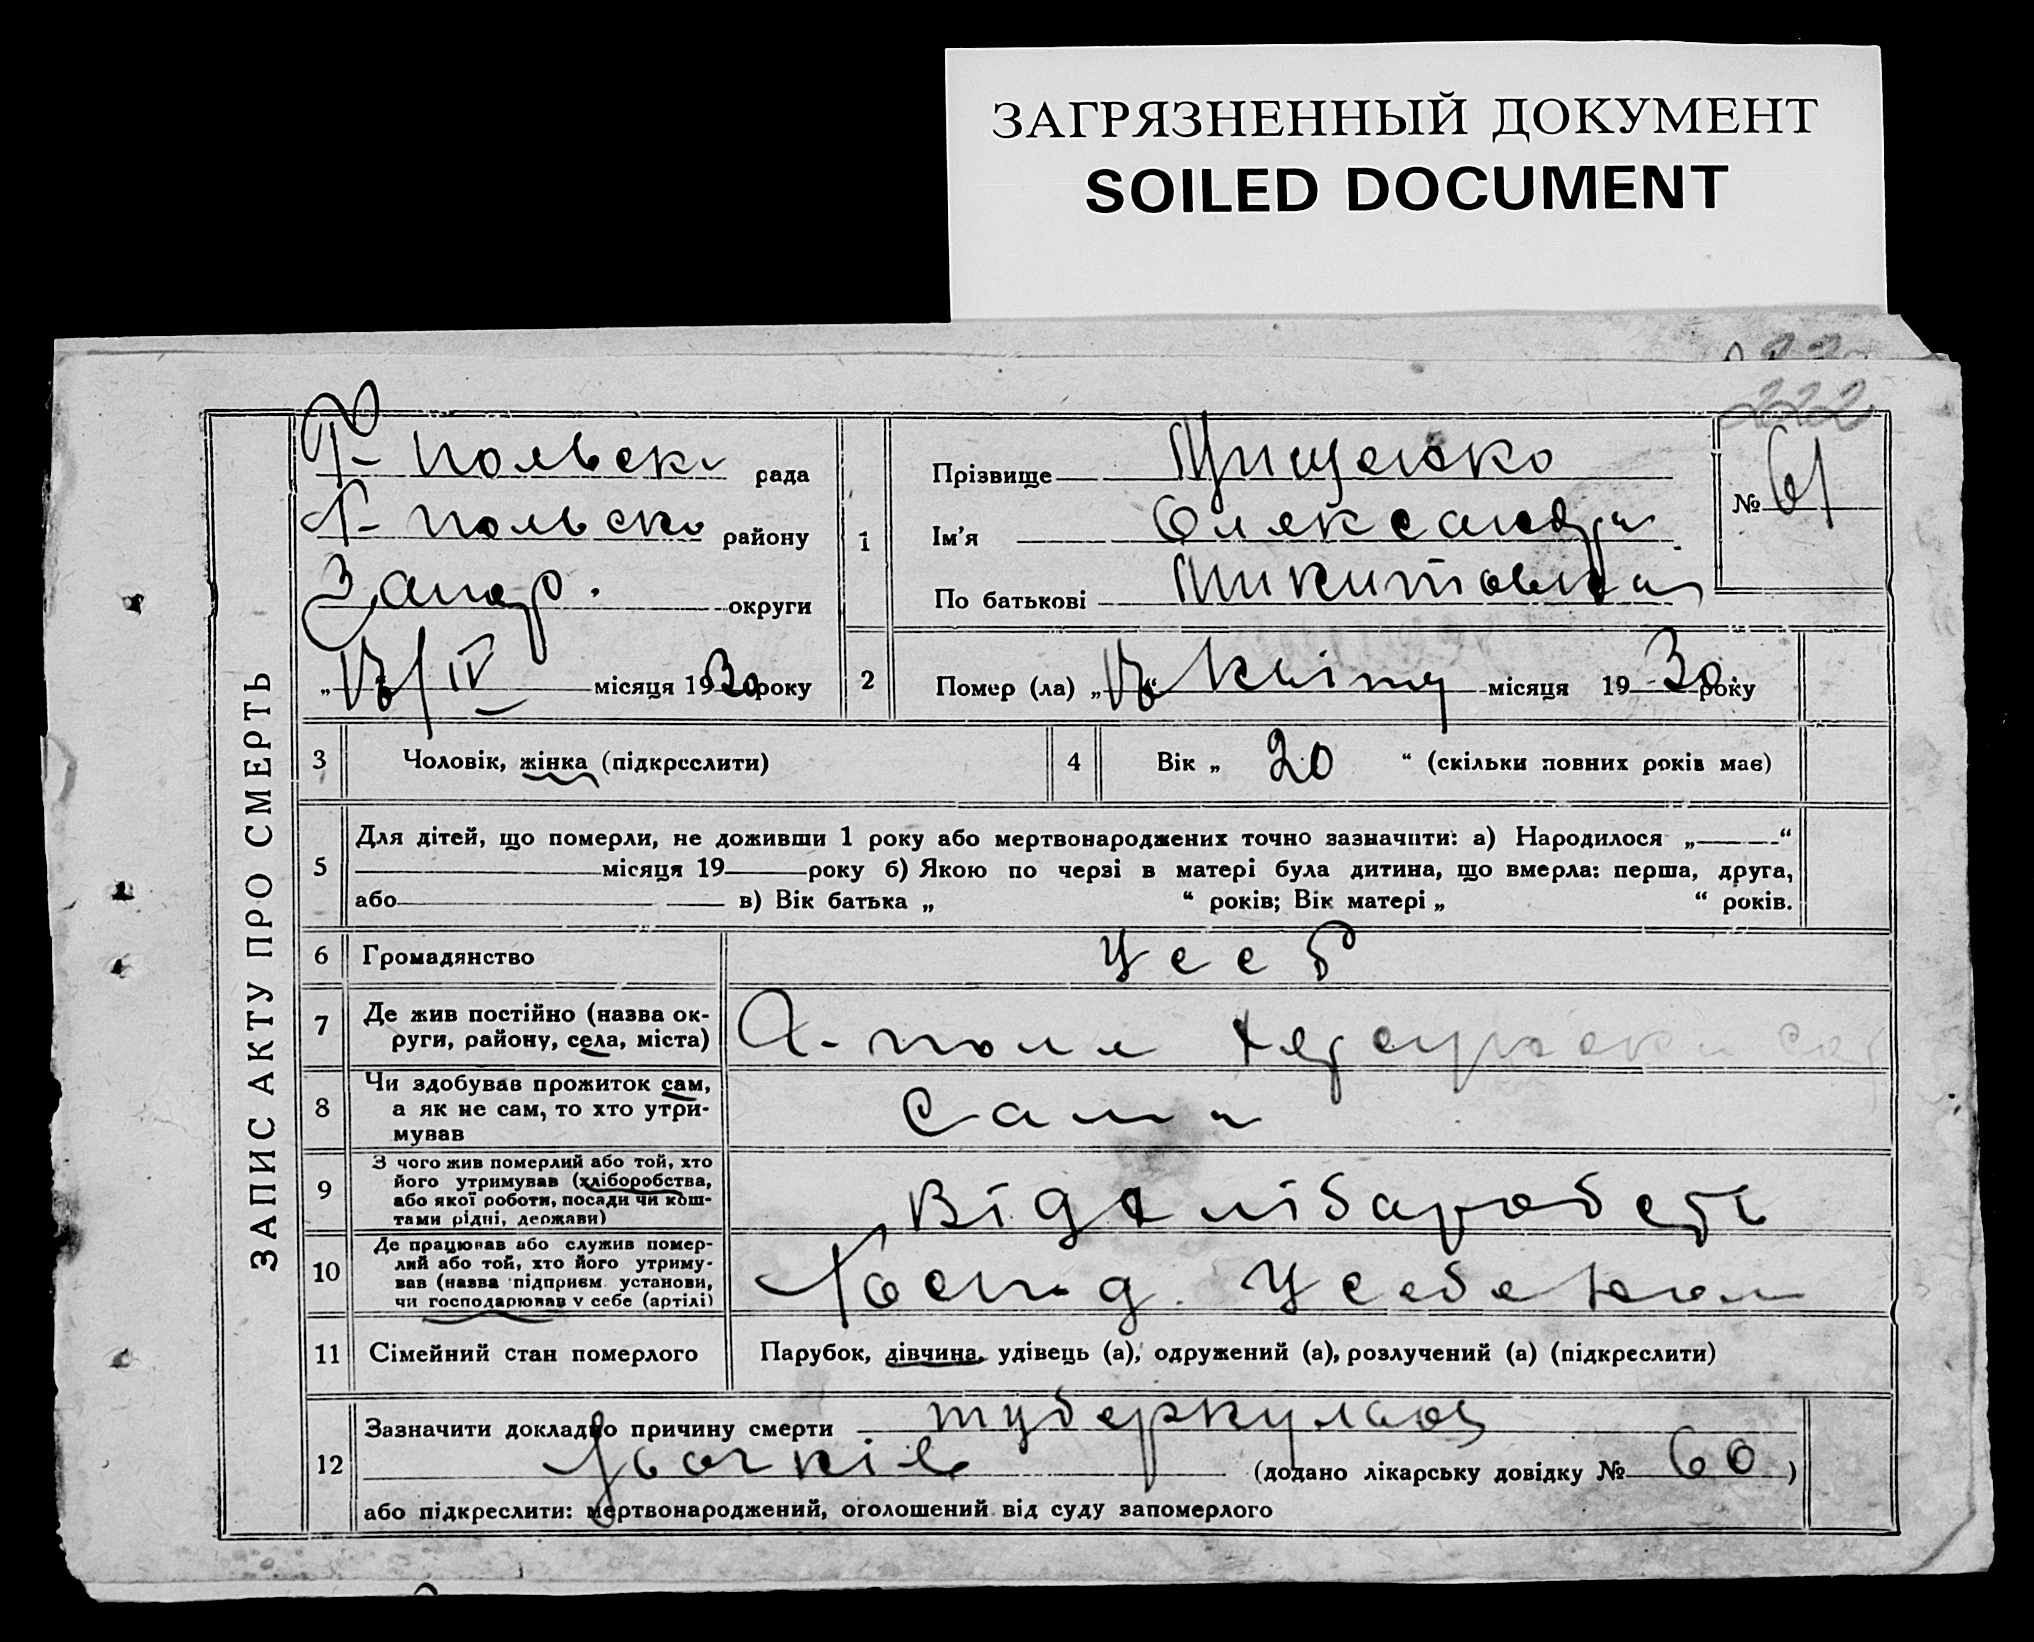 ЗАГРЯЗНЕННЫЙ ДОКУМЕНТ
SOILED DOCUMENT
222
ЗАПИС АКТУ ПРО СМЕРТЬ
Г-польськ рада
Г-польськ району
Запор. округи
„ 13/IV місяця 1930 року
1
Прізвище
Ім'я Олександра
По батькові Микитовна
№ 61
2 Помер (ла) „13“ Квітня місяця 1930 року
3 Чоловік, жінка (підкреслити)
4 Вік „ 20 “ (скільки повних років має)
5 Для дітей, що померли, не доживши 1 року або мертвонароджених точно зазначити: а) Народилося „ “
місяця 19 року б) Якою по черзі в матері була дитина, що вмерла: перша, друга,
або в) Вік батька „ “ років; Вік матері „ “ років.
6 Громадянство УССР
7 Де жив постійно (назва ок-
руги, району, села, міста) Г-поле
8 Чи здобував прожиток сам,
а як не сам, то хто утри-
мував
сама
9 З чого жив померлий або той, хто
його утримував (хліборобства,
або якої роботи, посади чи кош-
тами рідні, держави)
Від хліборобств
10 Де працював або служив помер-
лий або той, хто його утриму-
вав (назва підприєм. установи,
чи господарював у себе (артілі)
Госпд. У себе
11 Сімейний стан померлого Парубок, дівчина, удівець (а), одружений (а), розлучений (а) (підкреслити)
12 Зазначити докладно причину смерти туберкульоз
(додано лікарську довідку № 60 )
або підкреслити: мертвонароджений, оголошений від суду запомерлого